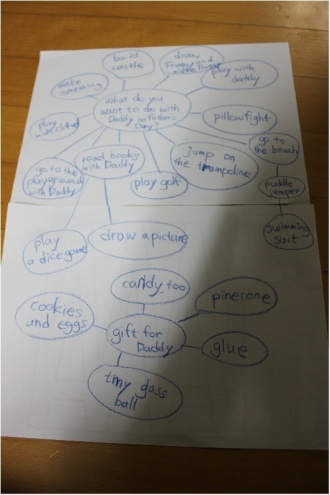 build
castle
draw
Daddy
play with
daddy
make
something
What do you
want to do with
Daddy on Father's
Day?
pillow fight
go to
the beach
jump on
the trampoline
read books
with Daddy
play golf
go to the
playground
with Daddy
puddle
jumper
swimming
suit
play
a dice game
draw a picture
candy too
pinecone
cookies
and eggs
gift for
Daddy
glue
tiny glass
ball